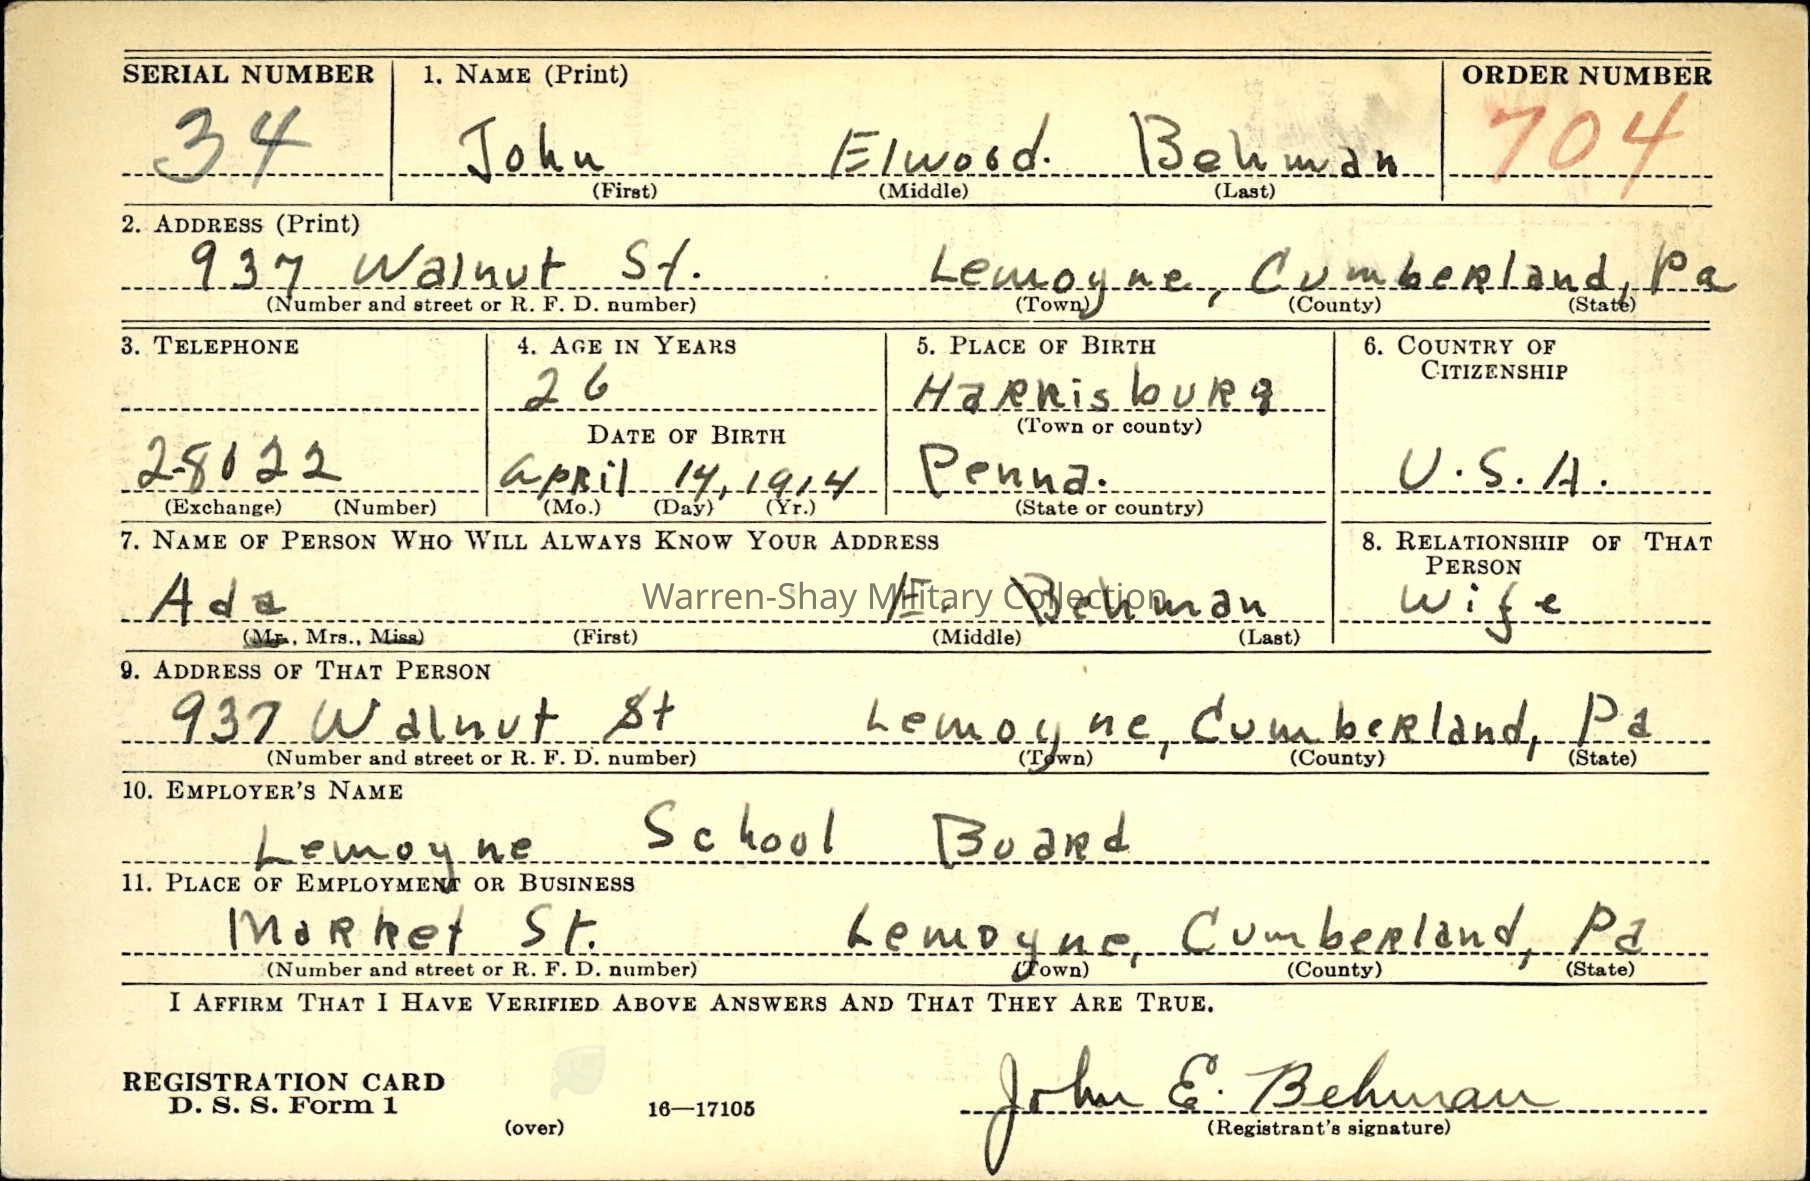 SERIAL NUMBER 1. NAME (Print) ORDER NUMBER
34 John Elwood. Behman 704
(First) (Middle) (Last)
2. ADDRESS (Print)
937 Walnut St. Lemoyne, Cumberland, Pa
(Number and street or R. F. D. number) (Town) (County) (State)
3. TELEPHONE 4. AGE IN YEARS 5. PLACE OF BIRTH 6. COUNTRY OF
CITIZENSHIP
26 Harrisburg
(Town or county)
DATE OF BIRTH
28122 April 14, 1914 Penna. U.S.A.
(Exchange) (Number) (Mo.) (Day) (Yr.) (State or country)
7. NAME OF PERSON WHO WILL ALWAYS KNOW YOUR ADDRESS 8. RELATIONSHIP OF THAT
PERSON
Ada E. Behman Wife
Warren-Shay Military Collection
(Mr., Mrs., Miss) (First) (Middle) (Last)
9. ADDRESS OF THAT PERSON
937 Walnut St Lemoyne, Cumberland, Pa
(Number and street or R. F. D. number) (Town) (County) (State)
10. EMPLOYER'S NAME
Lemoyne School Board
11. PLACE OF EMPLOYMENT OR BUSINESS
Market St. Lemoyne, Cumberland, Pa
(Number and street or R. F. D. number) (Town) (County) (State)
I AFFIRM THAT I HAVE VERIFIED ABOVE ANSWERS AND THAT THEY ARE TRUE.
REGISTRATION CARD
D. S. S. Form 1 16—17105 John E. Behman
(over) (Registrant's signature)